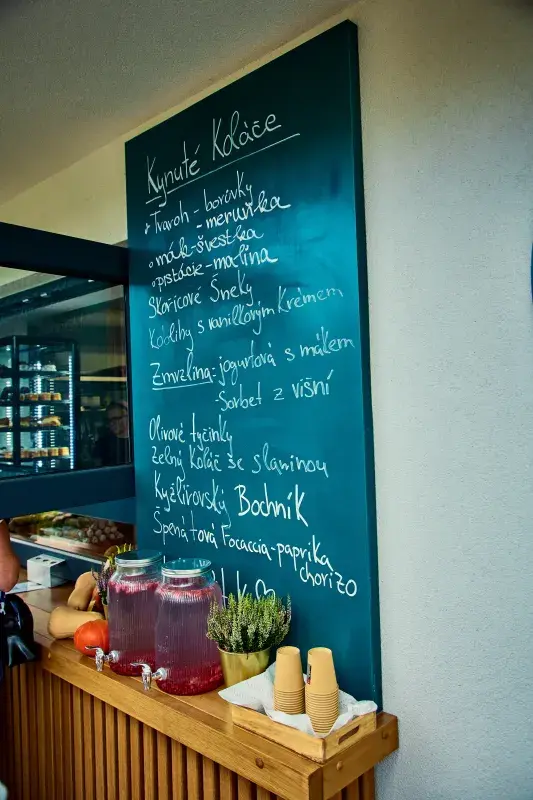 Kynuté Koláče
Tvaroh - borůvky
- meruňka
mák - švestka
prstácie - malina
Skořicové Šneky
Koblihy s vanilkovým Krémem
Zmrzlina: jogurtová s mákem
- Sorbet z višní
Olivové tyčinky
Zelný Koláč se slaninou
Kyžlírovský Bochník
Špenátová Focaccia - paprika
chorizo